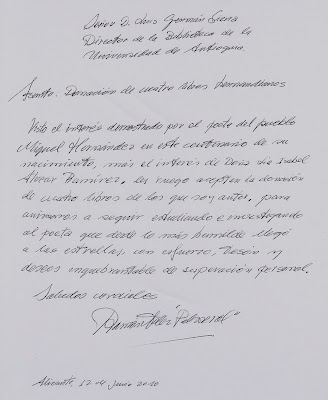 Señor D. Luis Germán Sierra
Director de la Biblioteca de la
Universidad de Antioquia
Asunto: Donación de cuatro libros hernandianos
Visto el interés demostrado por el poeta del pueblo
Miguel Hernández en este centenario de su
nacimiento, más el interés de Dora Isabel
Ramírez, les ruego acepten la donación
de cuatro libros de los que soy autor, para
animaros a seguir estudiando e investigando
al poeta que desde lo más humilde llegó
a las estrellas, con esfuerzo, tesón y
deseos inquebrantable de superación personal.
Saludos cordiales
Alicante, 12 de junio 2010